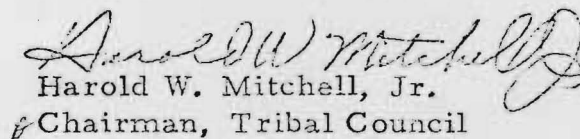 Harold W Mitchell Jr
Harold W. Mitchell, Jr.
Chairman, Tribal Council